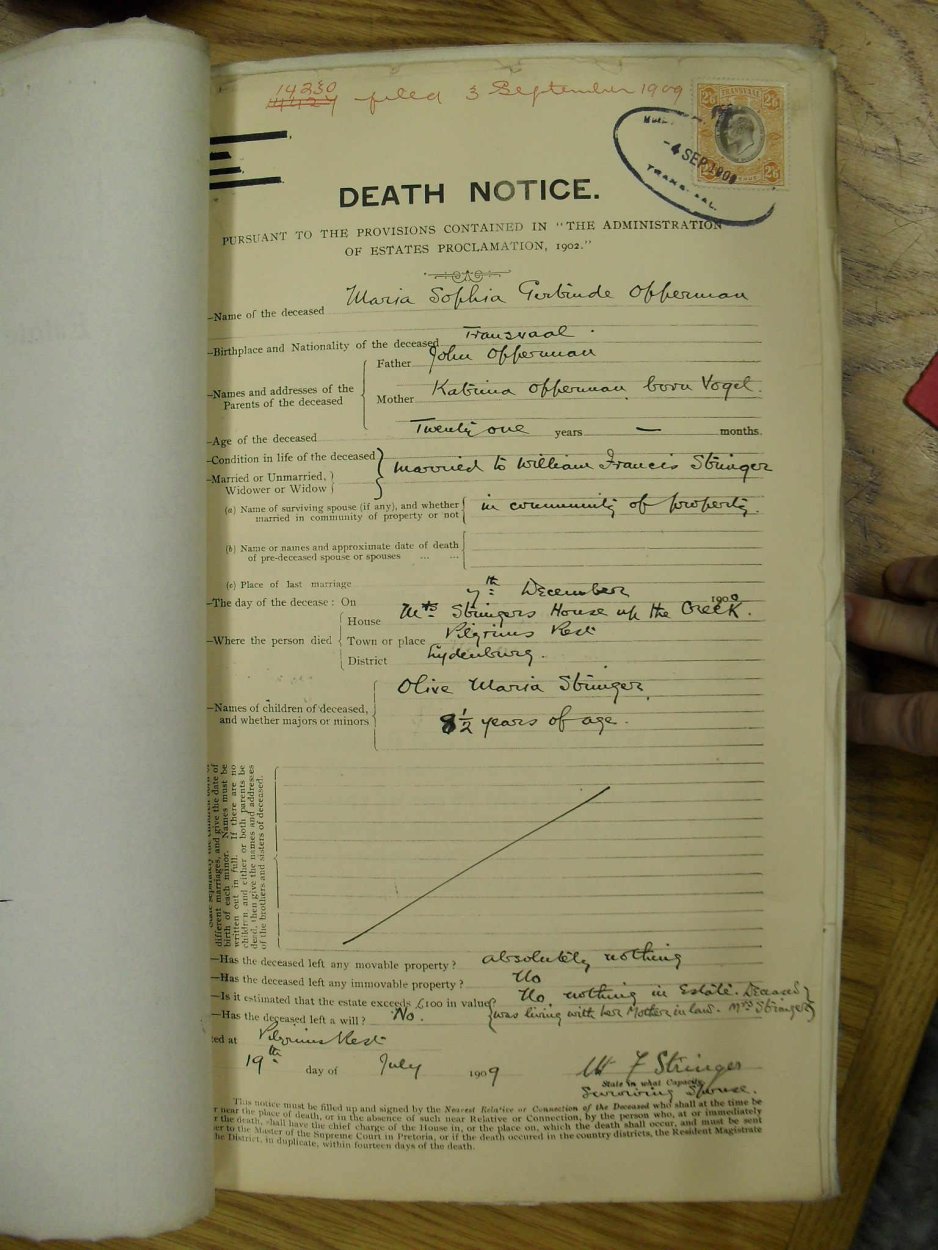 14230
14427 filed 3 September 1909
TRANSVAAL
2/6 2/6
-4 SEP 1909
TRANSVAAL.
2/6 2/6
DEATH NOTICE.
PURSUANT TO THE PROVISIONS CONTAINED IN "THE ADMINISTRATION
OF ESTATES PROCLAMATION, 1902."
—Name of the deceased Maria Sophia Gertrude Opperman
—Birthplace and Nationality of the deceased Transvaal.
—Names and addresses of the Parents of the deceased
Father John Opperman
Mother Katrina Opperman, born Vogel.
—Age of the deceased Twenty one years — months.
—Condition in life of the deceased
—Married or Unmarried, Widower or Widow
married to William Francis Stringer
(a) Name of surviving spouse (if any), and whether
married in community of property or not
in community of property.
(b) Name or names and approximate date of death
of pre-deceased spouse or spouses ... ...
(c) Place of last marriage
—The day of the decease: On 7th December 1900
—Where the person died
House Mrs Stringers House up the Creek.
Town or place Pilgrims Rest
District Lydenburg.
—Names of children of deceased,
and whether majors or minors
Olive Maria Stringer,
8½ years of age.
different marriages, and give the date of
birth of each minor. Names must be
written out in full. If there are no
children and either or both parents be
dead, then give the names and addresses
of the brothers and sisters of deceased.
—Has the deceased left any movable property? absolutely nothing
—Has the deceased left any immovable property? No
—Is it estimated that the estate exceeds £100 in value? No, nothing in Estate. Deceased
was living with her Mother in law. Mrs Stringer
—Has the deceased left a will? No.
ed at Pilgrims Rest
19th day of July 1909
W F Stringer
State in what Capacity
Surviving Spouse.
This notice must be filled up and signed by the Nearest Relative or Connection of the Deceased who shall at the time be
r near the place of death, or in the absence of such near Relative or Connection, by the person who, at or immediately
r the death, shall have the chief charge of the House in, or the place on, which the death shall occur, and must be sent
er to the Master of the Supreme Court in Pretoria, or if the death occured in the country districts, the Resident Magistrate
he District, in duplicate, within fourteen days of the death.